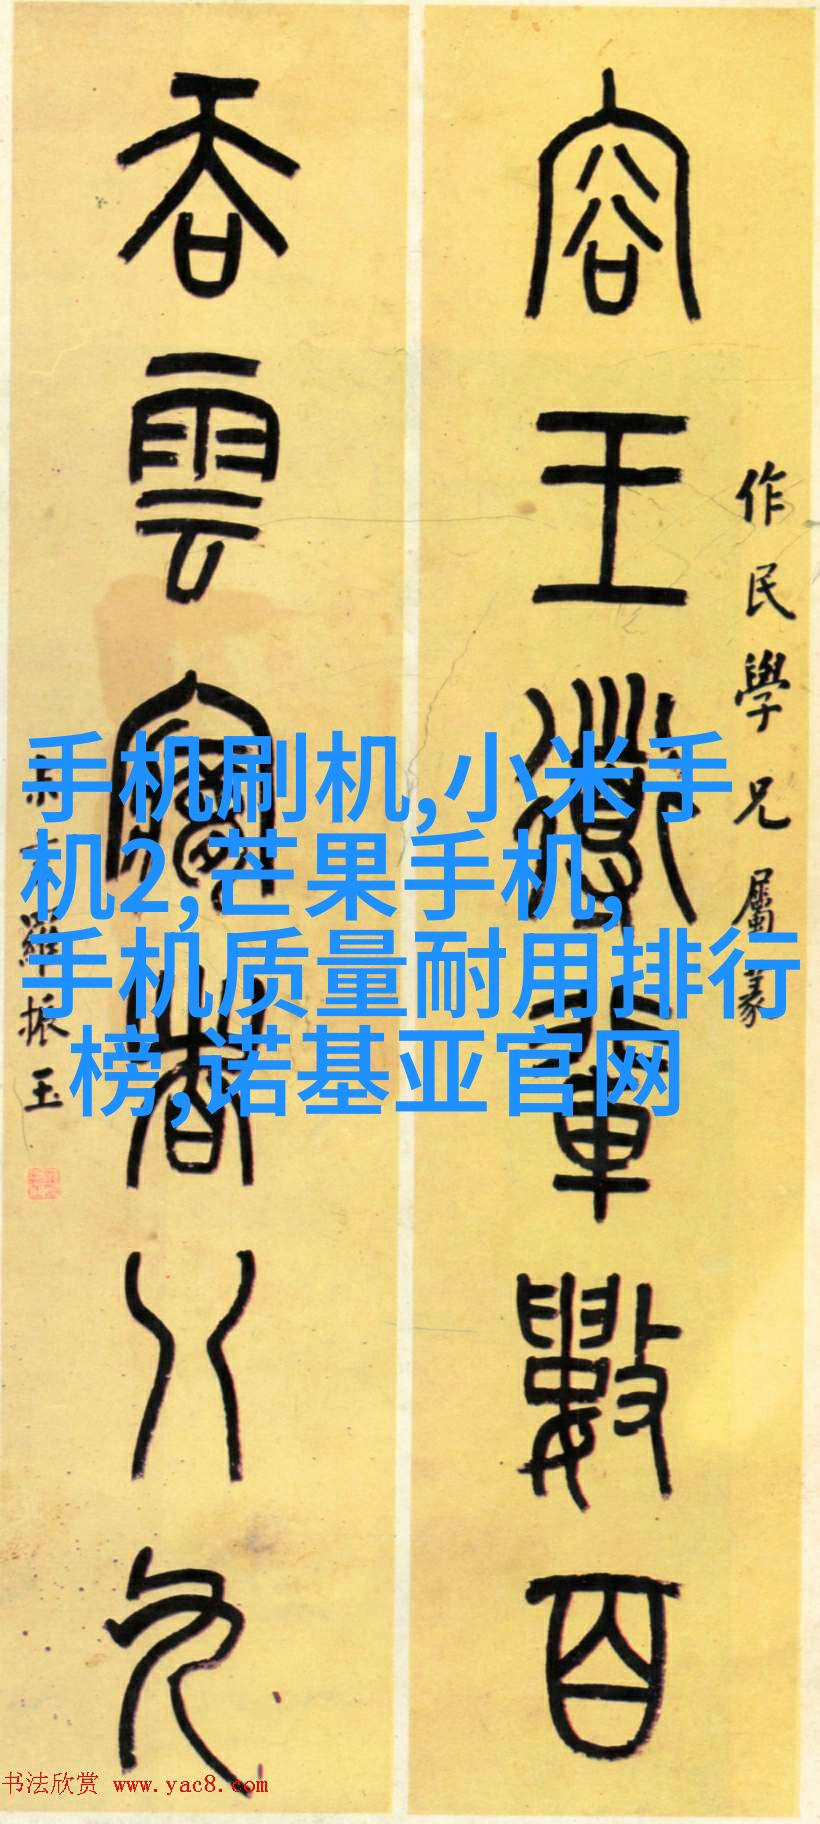 容王導輩數百
作民學兄屬篆
吞雲夢者八九
羅振玉
手机刷机,小米手
机2,芒果手机,
手机质量耐用排行
榜,诺基亚官网
书法欣赏 www.yac8.com